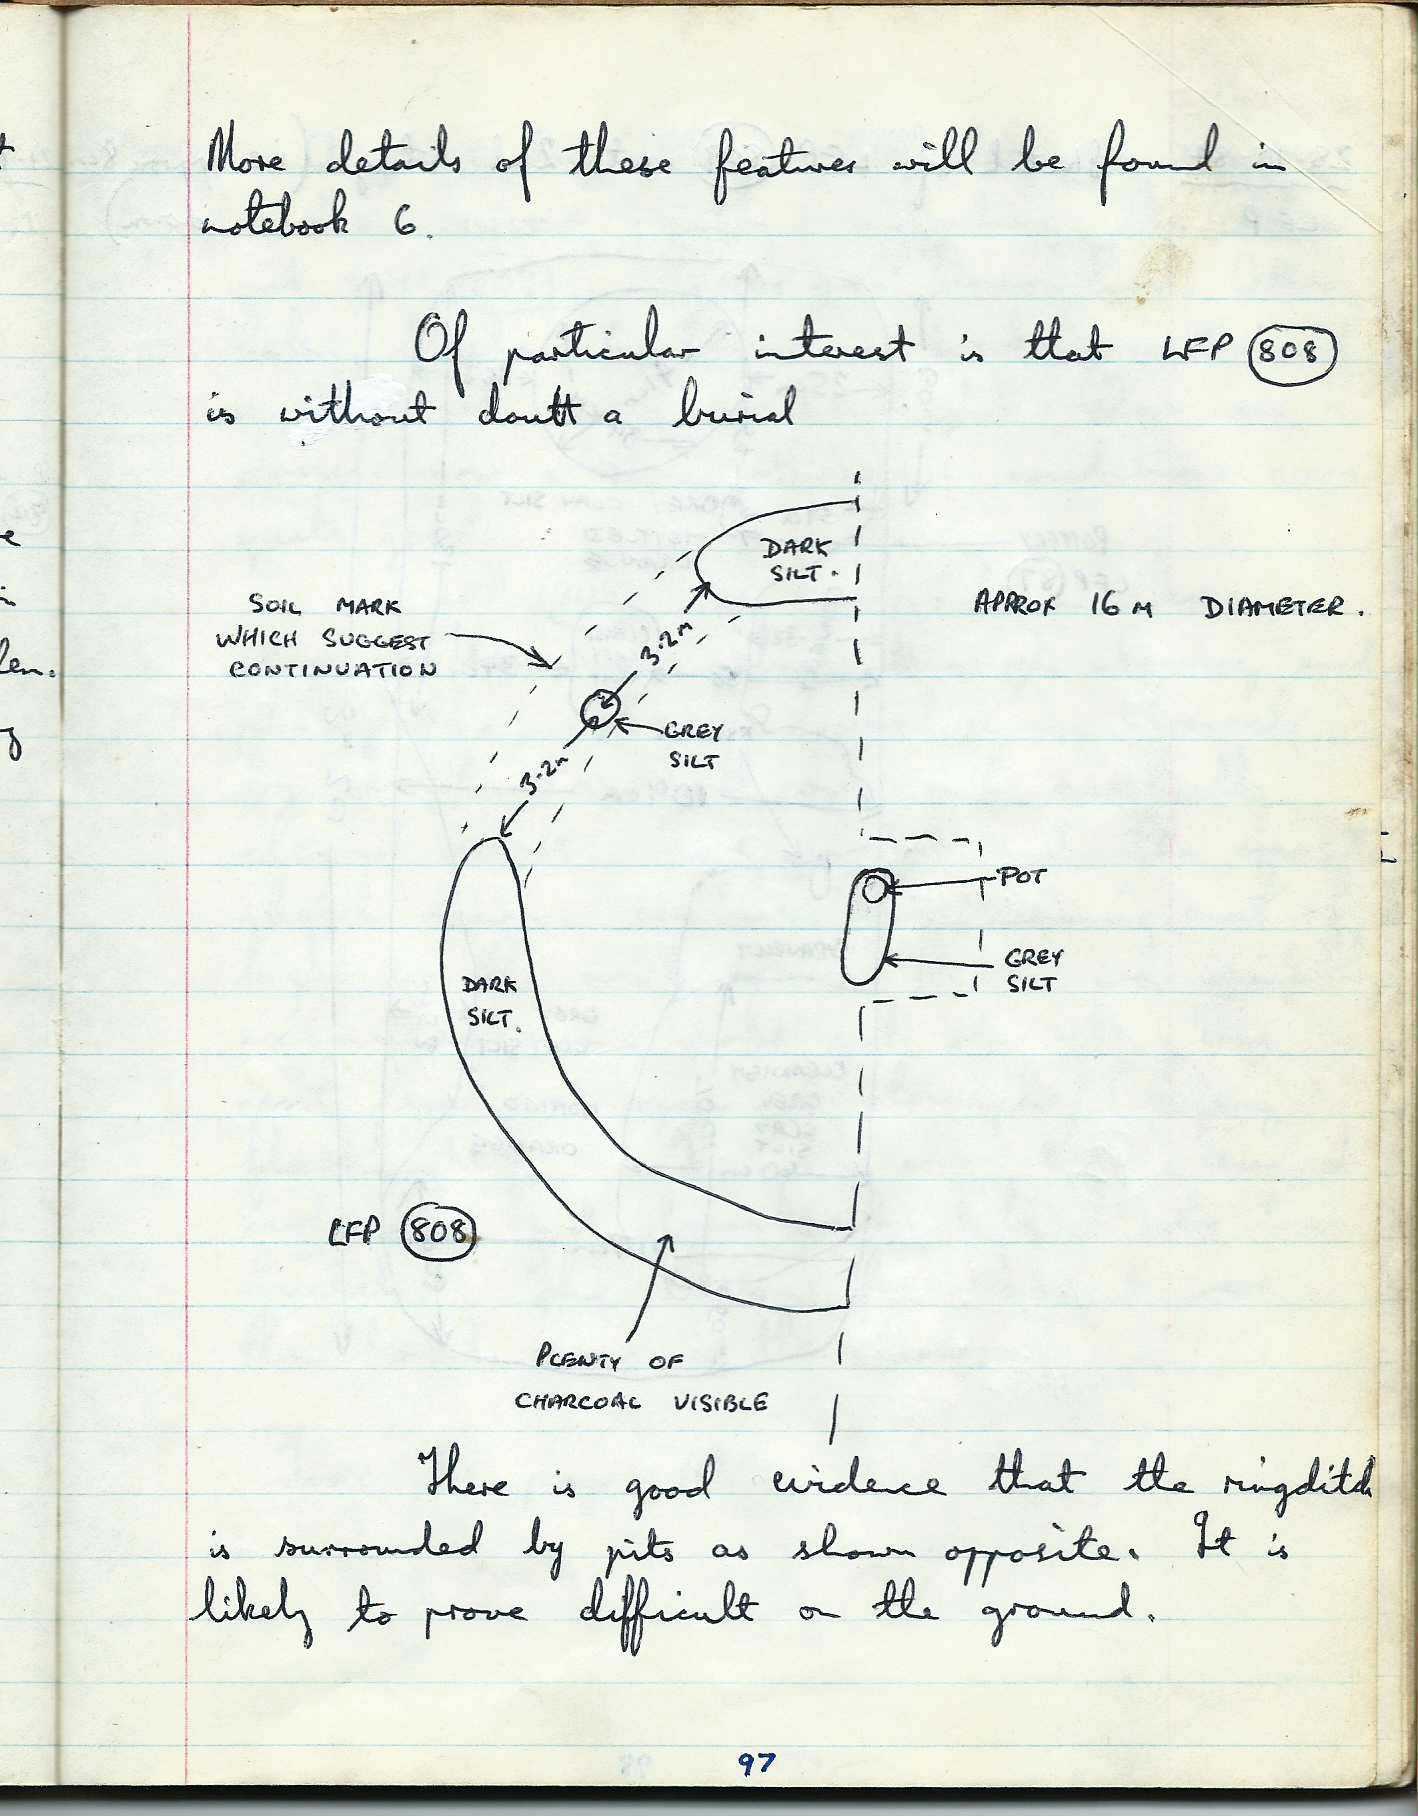 More details of these features will be found in
notebook 6.
Of particular interest is that LFP 808
is without doubt a burial
DARK
SILT.
SOIL MARK
WHICH SUGGEST
CONTINUATION
APPROX 16 M DIAMETER.
3.2m
GREY
SILT
3.2m
POT
GREY
SILT
DARK
SILT.
LFP 808
PLENTY OF
CHARCOAL VISIBLE
There is good evidence that the ringditch
is surrounded by pits as shown opposite. It is
likely to prove difficult on the ground.
97